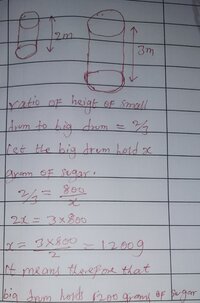 2m
3m
ratio of heigt of small
drum to big drum = 2/3
let the big drum hold x
gram of sugar.
2/3 = 800/x
2x = 3x800
x = 3x800/2 = 1200g
it means therefore that
big drum holds 1200 grams of sugar